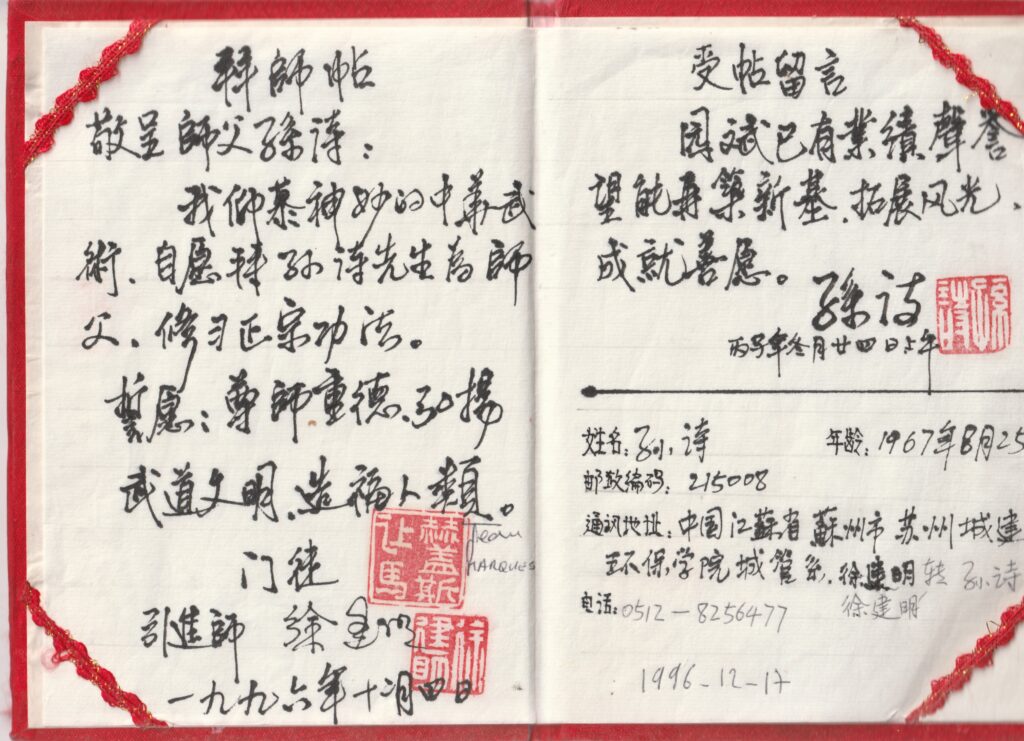 拜師帖
敬呈師父孫诗：
我仰慕神妙的中華武
術、自愿拜孙诗先生為師
父、修习正宗功法。
誓愿：尊師重德、弘揚
武道文明、造福人類。
门徒
让马赫盖斯
Jean
MARQUES
引進師 徐建明
徐建明
一九九六年十二月四日
受帖留言
国斌已有業績聲誉
望能再築新基、拓展风光、
成就善愿。
孫诗
孫詩
丙子年叁月廿四日上午
姓名：孙诗 年龄：1967年8月25
邮政编码：215008
通讯地址：中国江蘇省蘇州市苏州城建
环保学院城管系、徐建明转 孙诗
徐建明
电话：0512-8256477
1996-12-17